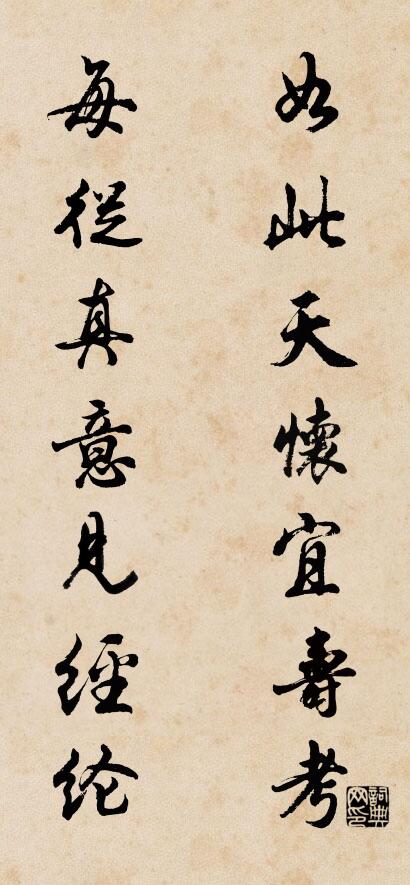 如此天懷宜壽考
每從真意見經纶
詞典网印